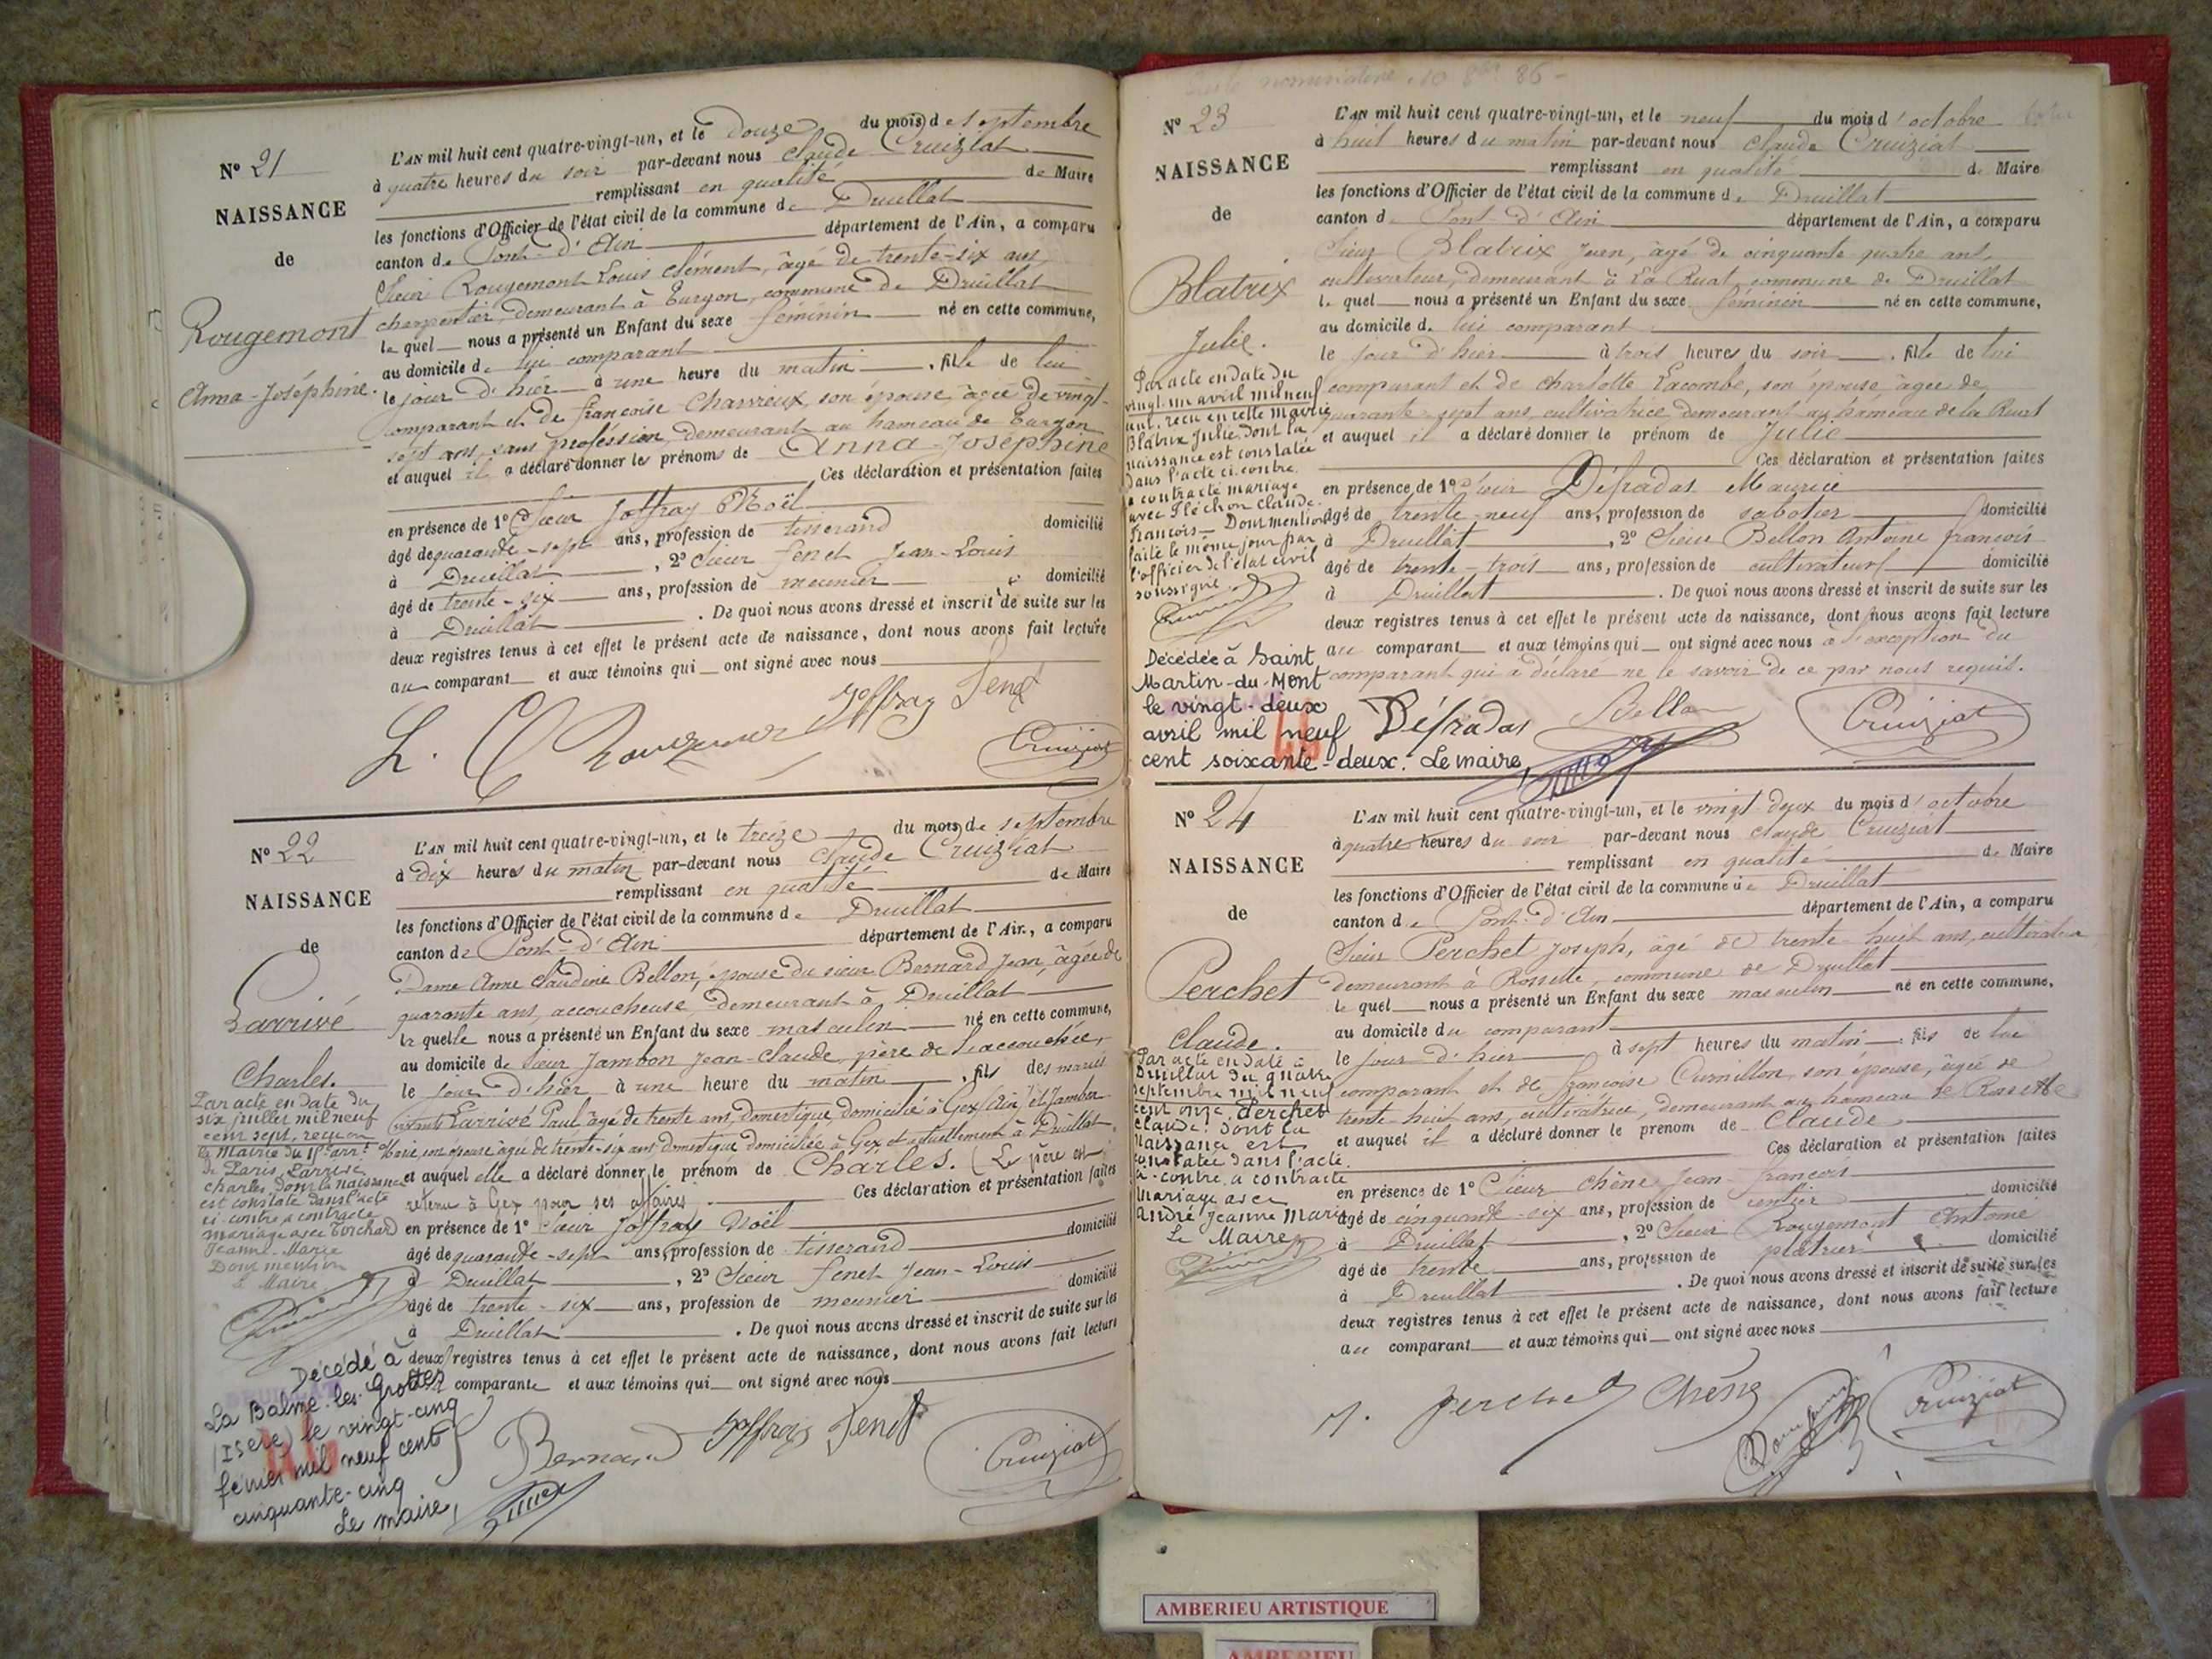 N° 21
NAISSANCE
de
Rougemont
Anna-Joséphine.
L'AN mil huit cent quatre-vingt-un, et le douze du mois de septembre
à quatre heures du soir par-devant nous Claude Cruiziat
remplissant en qualité de Maire
les fonctions d'Officier de l'état civil de la commune de Druillat
canton de Pont-d'Ain département de l'Ain, a comparu
Sieur Rougemont Louis Clément, âgé de trente-six ans,
charpentier, demeurant à Turgon, commune de Druillat
le quel nous a présenté un Enfant du sexe féminin né en cette commune,
au domicile de lui comparant
le jour d'hier à une heure du matin, fille de lui
comparant et de françoise Charvieux, son épouse, âgée de vingt-
sept ans, sans profession, demeurant au hameau de Turgon
et auquel il a déclaré donner les prénoms de Anna-Joséphine
Ces déclaration et présentation faites
en présence de 1° Sieur Joffray Noël
âgé de quarante-sept ans, profession de tisserand domicilié
à Druillat, 2° Sieur fenet Jean-Louis
âgé de trente-six ans, profession de meunier domicilié
à Druillat. De quoi nous avons dressé et inscrit de suite sur les
deux registres tenus à cet effet le présent acte de naissance, dont nous avons fait lecture
au comparant et aux témoins qui ont signé avec nous
L. C. Rougemont Joffray Fenet
Cruiziat
N° 22
NAISSANCE
de
Larrivé
Charles.
Par acte en date du
six juillet mil neuf
cent sept, reçu en
la Mairie du 18e arrt
de Paris, Larrivé
Charles, dont la naissance
est constatée dans l'acte
ci-contre a contracté
mariage avec Torchard
Jeanne-Marie
Dont mention
le Maire
Décédé à
La Balme-les-Grottes
(Isère) le vingt-cinq
février mil neuf cent
cinquante-cinq
Le maire,
L'AN mil huit cent quatre-vingt-un, et le treize du mois de septembre
à dix heures du matin par-devant nous Claude Cruiziat
remplissant en qualité de Maire
les fonctions d'Officier de l'état civil de la commune de Druillat
canton de Pont-d'Ain département de l'Ain, a comparu
Dame Anne Claudine Bellon, épouse du sieur Bernard Jean, âgée de
quarante ans, accoucheuse, demeurant à Druillat
la quelle nous a présenté un Enfant du sexe masculin né en cette commune,
au domicile de Sieur Jambon Jean-Claude, père de l'accouchée,
le jour d'hier à une heure du matin, fils des mariés
Larrivé Paul âgé de trente ans, domestique, domicilié à Gex (Ain) et Jambon
Marie, son épouse âgée de trente-six ans domestique domiciliée à Gex et actuellement à Druillat,
et auquel elle a déclaré donner le prénom de Charles. (Le père est
retenu à Gex pour ses affaires Ces déclaration et présentation faites
en présence de 1° Sieur Joffray Noël
âgé de quarante-sept ans, profession de tisserand domicilié
à Druillat, 2° Sieur fenet Jean-Louis
âgé de trente-six ans, profession de meunier domicilié
à Druillat. De quoi nous avons dressé et inscrit de suite sur les
deux registres tenus à cet effet le présent acte de naissance, dont nous avons fait lecture
comparante et aux témoins qui ont signé avec nous
Bernard Joffray Fenet
Cruiziat
N° 23
NAISSANCE
de
Blatrix
Julie.
Par acte en date du
vingt-un avril mil neuf
cent, reçu en cette mairie
Blatrix Julie, dont la
naissance est constatée
dans l'acte ci-contre,
a contracté mariage
avec Pléchon Claude-
François. Dont mention
faite le même jour par
l'officier de l'état civil
soussigné.
Décédée à Saint
Martin-du-Mont
le vingt-deux
avril mil neuf
cent soixante-deux. Le maire,
L'AN mil huit cent quatre-vingt-un, et le neuf du mois d'octobre
à huit heures du matin par-devant nous Claude Cruiziat
remplissant en qualité de Maire
les fonctions d'Officier de l'état civil de la commune de Druillat
canton de Pont-d'Ain département de l'Ain, a comparu
Sieur Blatrix Jean, âgé de cinquante quatre ans,
cultivateur, demeurant à La Ruat, commune de Druillat
le quel nous a présenté un Enfant du sexe féminin né en cette commune,
au domicile de lui comparant
le jour d'hier à trois heures du soir, fille de lui
comparant et de Charlotte Lacombe, son épouse, âgée de
quarante-sept ans, cultivatrice demeurant au hameau de la Ruat
et auquel il a déclaré donner le prénom de Julie
Ces déclaration et présentation faites
en présence de 1° Sieur Défradas Maurice
âgé de trente-neuf ans, profession de sabotier domicilié
à Druillat, 2° Sieur Bellon Antoine françois
âgé de trente-trois ans, profession de cultivateur domicilié
à Druillat. De quoi nous avons dressé et inscrit de suite sur les
deux registres tenus à cet effet le présent acte de naissance, dont nous avons fait lecture
au comparant et aux témoins qui ont signé avec nous à l'exception du
comparant qui a déclaré ne le savoir de ce par nous requis.
Défradas Bellon
Cruiziat
N° 24
NAISSANCE
de
Perchet
Claude.
Par acte en date à
Druillat du quatre
septembre mil neuf
cent onze, Perchet
Claude, dont la
naissance est
constatée dans l'acte
ci-contre, a contracté
mariage avec
André Jeanne Marie
Le Maire
L'AN mil huit cent quatre-vingt-un, et le vingt-deux du mois d'octobre
à quatre heures du soir par-devant nous Claude Cruiziat
remplissant en qualité de Maire
les fonctions d'Officier de l'état civil de la commune de Druillat
canton de Pont-d'Ain département de l'Ain, a comparu
Sieur Perchet Joseph, âgé de trente-huit ans, cultivateur
demeurant à Rossette, commune de Druillat
le quel nous a présenté un Enfant du sexe masculin né en cette commune,
au domicile du comparant
le jour d'hier à sept heures du matin, fils de lui
comparant et de françoise Curnillon, son épouse, âgée de
trente-huit ans, cultivatrice, demeurant au hameau de Rossette
et auquel il a déclaré donner le prénom de Claude
Ces déclaration et présentation faites
en présence de 1° Sieur Chêne Jean-françois
âgé de cinquante-six ans, profession de rentier domicilié
à Druillat, 2° Sieur Rougemont Antoine
âgé de trente ans, profession de plâtrier domicilié
à Druillat. De quoi nous avons dressé et inscrit de suite sur les
deux registres tenus à cet effet le présent acte de naissance, dont nous avons fait lecture
au comparant et aux témoins qui ont signé avec nous
J. Perchet Chêne
Cruiziat
AMBERIEU ARTISTIQUE
AMBERIEU